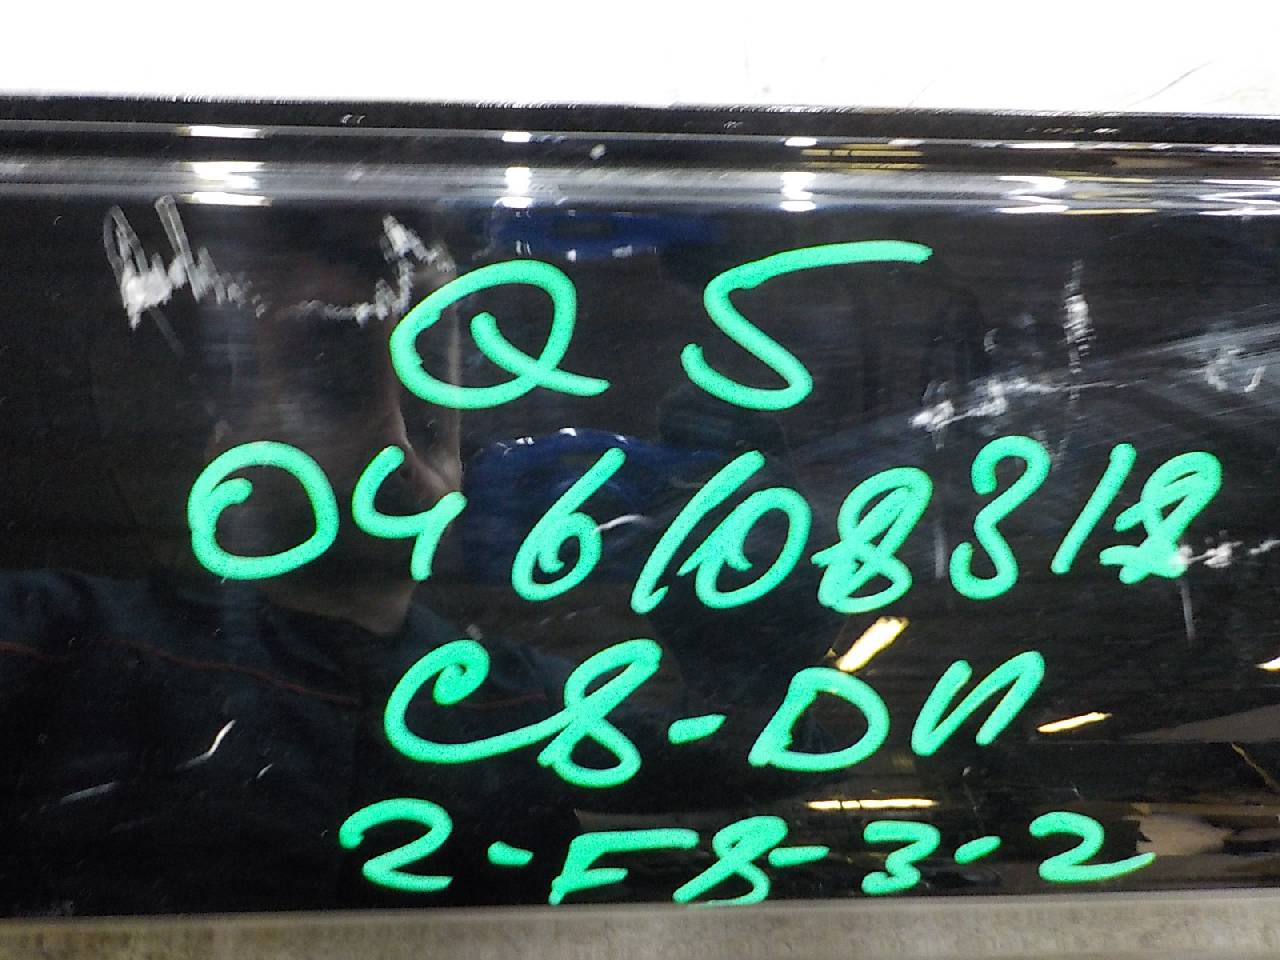 Q 5
046108318
C8-DИ
2-F8-3-2